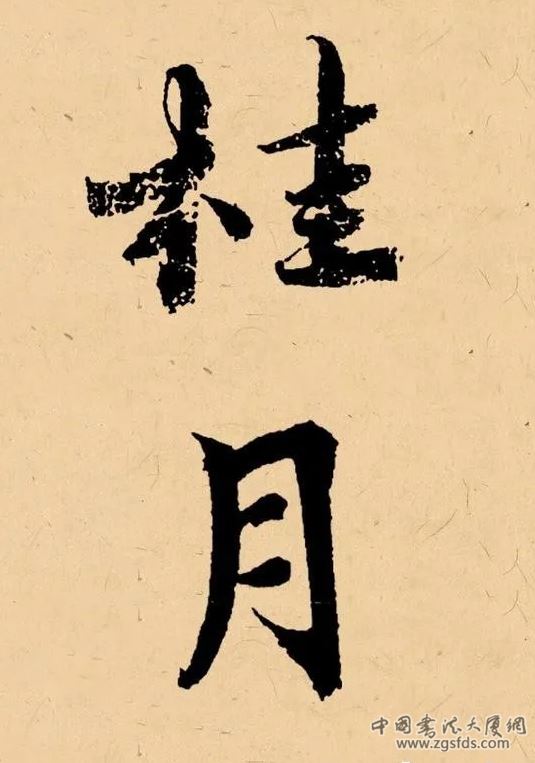 桂
月
中国书法大厦網
www.zgsfds.com